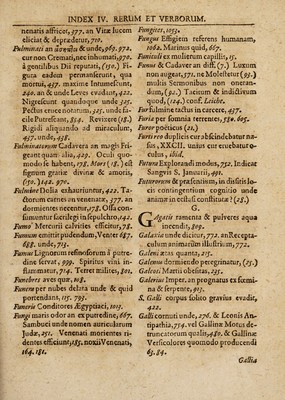 INDEX IV. RERUM ET VERBORUM.
nenatis afficit, 577. an Vitæ lucem
eliciat & deprædatur, 710.
Fulminati an & unde, 969. 972.
cur non Cremati, nec inhumati, 970.
à gentilibus Dii reputati, (150.) Fi-
gura eadem permanserunt, qua
mortui, 437. maxime Intumescunt,
220. an & unde Leves evadant, 422.
Nigrescunt quandoque unde 325.
Pectus envæ notatum, 425. unde fa-
cile Putrescant, 854. Revixere (18.)
Rigidi aliquando ad miraculum,
457. unde, 458.
Fulminatorum Cadavera an magis Fri-
geant quam alia, 423. Oculi quo-
modo se habent, 178. Mors (18.) est
signum gratiæ divinæ & amoris,
(150.) 142. 970.
Fulvinæ Dolia exhauriuntur, 422. Ta-
ctorum carnes an venenatæ, 377. an
dormientes necentur, 78. Ossa con-
sumuntur sacrilegi in sepulchro, 142.
Fumo Mercurii calvities efficitur, 78.
Fumum emittit pudendum, Venter 687.
688. unde, 715.
Fumus Lignorum refinosorum à putre-
dine servat, 999. Spiritus vini in-
flammatur, 714. Terret milites, 801.
Funebres aves quæ, 108.
Funera per nubes delata unde & quid
portendant, 115. 793.
Funeris Conditores Ægyptiaci, 1013.
Fungi maris odor an ex putredine, 667.
Sambuci unde nomen auricularum
Judæ, 251. Venenati morientes ri-
dentes efficiunt, 185. noxii Venenati,
164. 181.
Fungeres, 1053.
Fungus Effigiem referens humanam,
1062. Marinus quid, 667.
Funiculi ex mulierum capillis, 15.
Funus & Cadaver an diff. (7.) Luxum
non augeat, 371. ne Molestetur (93.)
multis Sermonibus non oneran-
dum, (92.) Tacitum & indictivum
quod, (124.) conf. Leiche.
Fur fulmine tactus in carcere, 457.
Furia per somnia terrentes, 580. 605.
Furor poeticus (21.)
Furis rei duplicis cur abscindebatur na-
sus, XXCII. unius cur eruebatur o-
culus, ibid.
Futura Explorandi modus, 752. Indicat
Sangvis S. Januarii, 491.
Futurorum & præsentium, in dissitis lo-
cis contingentium cognitio unde
animæ in ecstasi constitutæ? (28.)
G.
Gagatis ramenta & pulveres aqua
incendi, 809.
Galaxia unde dicitur, 772. an Recepta-
culum animarum illustrium, 772.
Galeni ætas quanta, 225.
Galenus dormiendo peregrinatur, (25.)
Galeoti Martii obesitas, 235.
Galerius Imper. an prognatus ex fœmi-
na & serpente, 403.
S. Galli corpus subito gravius evadit,
422.
Galli cornuti unde, 276. & Leonis An-
tipathia, 754. vel Gallinæ Motus de-
truncatorum qualis, 480. & Gallinæ
Versicolores quomodo producendi
63. 84.
Gallia